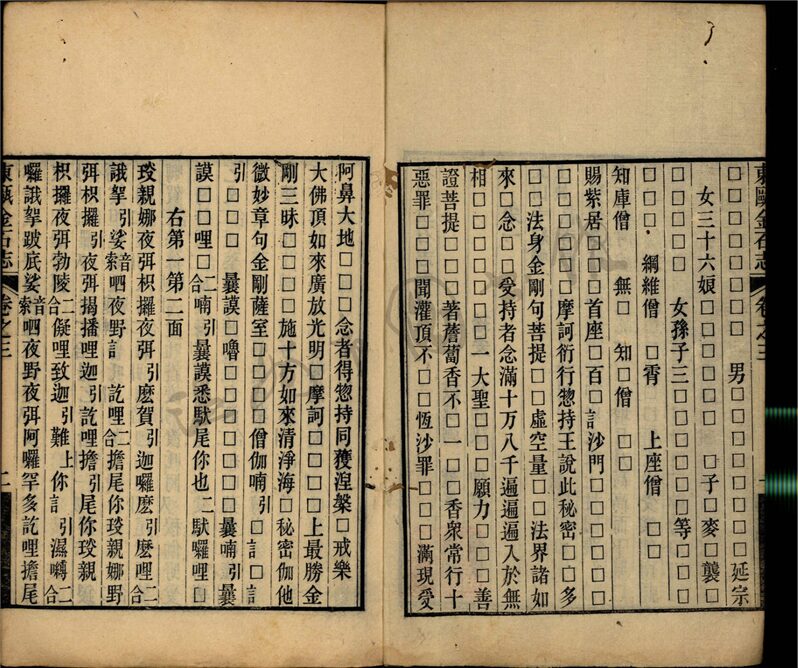 東甌金石志 卷之三
□□□□□□□ 男□□□□□□□延宗
女三十六娘□□□□ □子□麥□襲□
□□□□ 女孫子三□□□□□等□
□□□□ 綱維僧 □霄 上座僧 □□
知庫僧 無□ 知□僧 □□
賜紫居□□□□首座□百□訁沙門□□□□
□□□□□摩訶衍行惣持王說此秘密□□多
□□法身金剛句菩提□□虛空量□□法界諸如
來□念□□受持者念滿十万八千遍遍遍入於無
相□□□□□一大聖□□□願力□□□□善
證菩提□□□著薝蔔香不□一□□香衆常行十
惡罪□□□聞灌頂不□□恆沙罪□□□□滿現受
阿鼻大地□□□□念者得惣持同獲涅槃□戒樂
大佛頂如來廣放光明□摩訶□□□□□上最勝金
剛三昧□□□□□施十方如來清淨海□秘密伽他
微妙章句金剛薩室□□□□僧伽喃引□□訁□訁
引□□□□ 曩謨□嚕□□□□□□曩喃引曩
謨□□□哩□二合喃引曩謨悉馱尾你也二馱囉哩□
右第一第二面
琰親娜夜弭枳攞夜弭引麼賀引迦囉麼引麼哩二合
誐拏引娑音索呬夜野訁訖哩二合擔尾你琰親娜野
弭枳攞引夜弭揭播哩迦引訖哩擔引尾你琰親
枳攞夜弭勃陵二合儗哩致迦引難上你訁引濕嚩二合
囉誐拏跛底娑音索呬夜野夜弭阿囉罕多訖哩擔尾
東甌金石志 卷之三 二